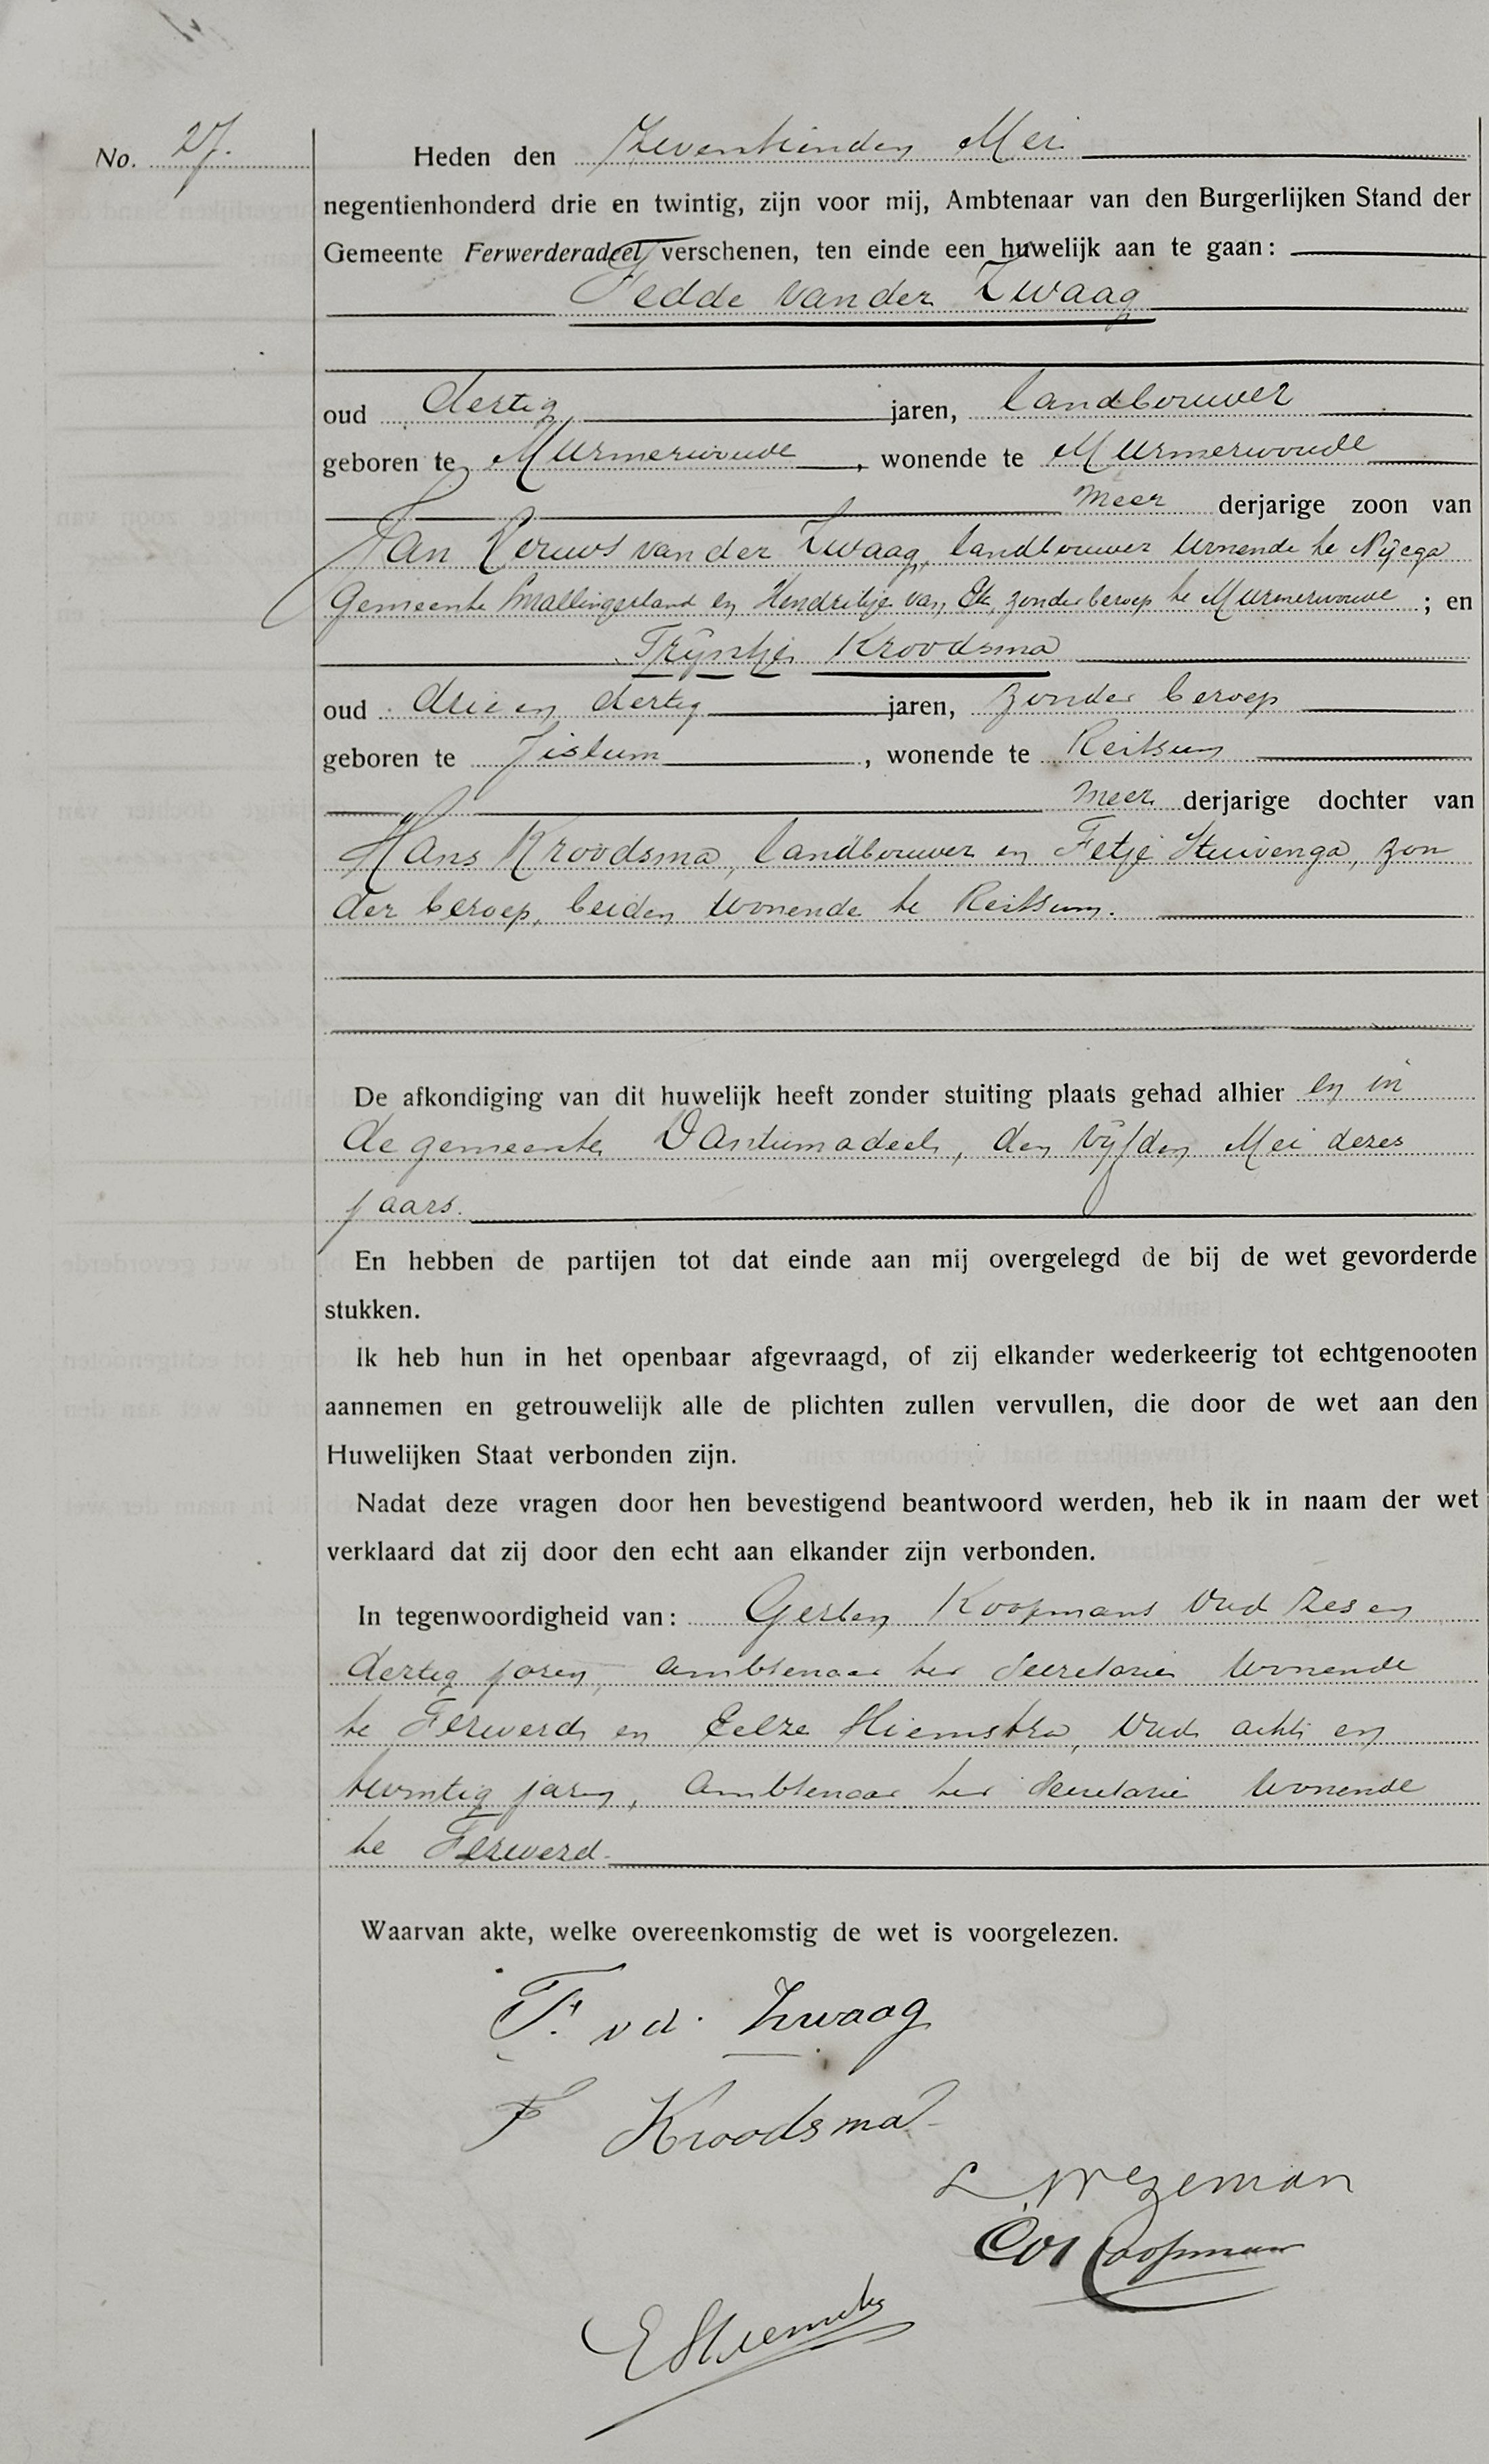 No. 27.
Heden den Zeventienden Mei
negentienhonderd drie en twintig, zijn voor mij, Ambtenaar van den Burgerlijken Stand der
Gemeente Ferwerderadeel verschenen, ten einde een huwelijk aan te gaan:
Tedde van der Zwaag
oud dertig jaren, landbouwer
geboren te Murmerwoude, wonende te Murmerwoude
meer derjarige zoon van
Jan Leeuws van der Zwaag, landbouwer wonende te Nijega
Gemeente Smallingerland en Hendrikje van Ek, zonder beroep te Murmerwoude; en
Trijntje Kroodsma
oud drie en dertig jaren, zonder beroep
geboren te Jislum, wonende te Reitsum
meer derjarige dochter van
Hans Kroodsma, landbouwer en Fetje Stuivenga, zon
der beroep, beiden wonende te Reitsum.
De afkondiging van dit huwelijk heeft zonder stuiting plaats gehad alhier en in
de gemeente Dantumadeel, den vijfden Mei dezes
jaars.
En hebben de partijen tot dat einde aan mij overgelegd de bij de wet gevorderde
stukken.
Ik heb hun in het openbaar afgevraagd, of zij elkander wederkeerig tot echtgenooten
aannemen en getrouwelijk alle de plichten zullen vervullen, die door de wet aan den
Huwelijken Staat verbonden zijn.
Nadat deze vragen door hen bevestigend beantwoord werden, heb ik in naam der wet
verklaard dat zij door den echt aan elkander zijn verbonden.
In tegenwoordigheid van: Gerben Koopmans oud zes en
dertig jaren, ambtenaar ter Secretarie wonende
te Ferwerd en Eelze Hiemstra, oud acht en
twintig jaren, ambtenaar ter Secretarie wonende
te Ferwerd.
Waarvan akte, welke overeenkomstig de wet is voorgelezen.
T. vd. Zwaag
T Kroodsma
L Wezeman
Koopmans
E Hiemstra